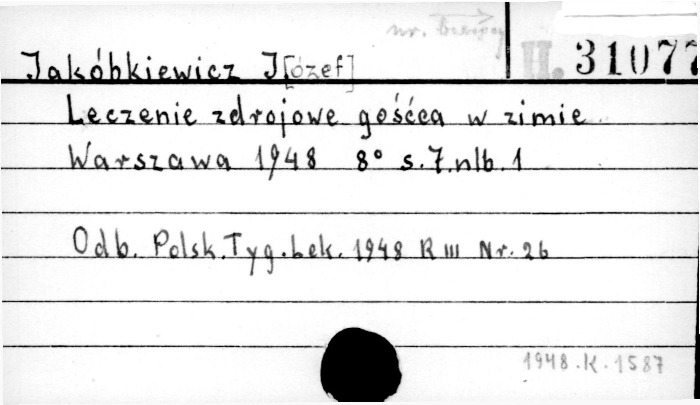 nr. bieżący
II. 31077
Jakóbkiewicz J[ózef]
Leczenie zdrojowe gośćca w zimie
Warszawa 1948 8° s.7.nlb.1
Odb. Polsk. Tyg. Lek. 1948 R III Nr. 26
1948.K.1587